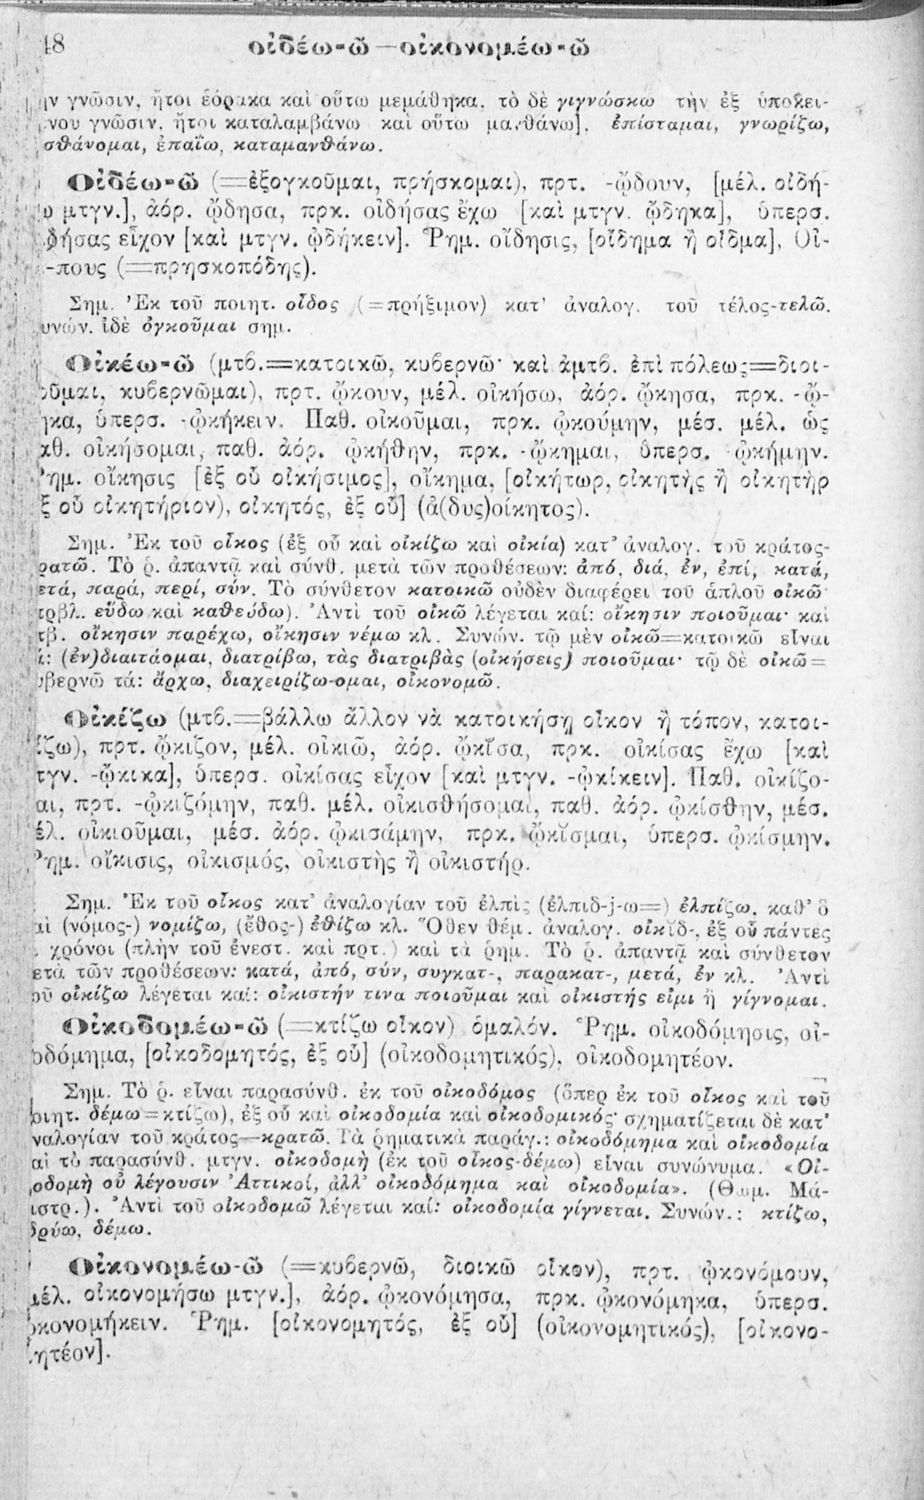 48 οἰδέω-ῶ — οἰκονομέω-ῶ
γνῶσιν, ἤτοι ἑόρακα καὶ οὕτω μεμάθηκα, τὸ δὲ γιγνώσκω τὴν ἐξ ὑποκει-
νου γνῶσιν, ἤτοι καταλαμβάνω καὶ οὕτω μανθάνω], ἐπίσταμαι, γνωρίζω,
σθάνομαι, ἐπαΐω, καταμανθάνω.
Οἰδέω-ῶ (=ἐξογκοῦμαι, πρήσκομαι), πρτ. -ᾤδουν, [μέλ. οἰδή-
ω μτγν.], ἀόρ. ᾤδησα, πρκ. οἰδήσας ἔχω [καὶ μτγν. ᾤδηκα], ὑπερσ.
δήσας εἶχον [καὶ μτγν. ᾠδήκειν]. Ῥημ. οἴδησις, [οἴδημα ἢ οἶδμα], Οἰ-
-πους (=πρησκοπόδης).
Σημ. Ἐκ τοῦ ποιητ. οἶδος (=πρήξιμον) κατ' ἀναλογ. τοῦ τέλος-τελῶ.
υνών. ἰδὲ ὀγκοῦμαι σημ.
Οἰκέω-ῶ (μτβ.=κατοικῶ, κυβερνῶ· καὶ ἀμτβ. ἐπὶ πόλεως=διοι-
οῦμαι, κυβερνῶμαι), πρτ. ᾤκουν, μέλ. οἰκήσω, ἀόρ. ᾤκησα, πρκ. -ᾤ-
ηκα, ὑπερσ. -ᾠκήκειν. Παθ. οἰκοῦμαι, πρκ. ᾠκούμην, μέσ. μέλ. ὡς
αθ. οἰκήσομαι, παθ. ἀόρ. ᾠκήθην, πρκ. -ᾤκημαι, ὑπερσ. -ᾠκήμην.
Ῥημ. οἴκησις [ἐξ οὗ οἰκήσιμος], οἴκημα, [οἰκήτωρ, οἰκητὴς ἢ οἰκητὴρ
ξ οὗ οἰκητήριον), οἰκητός, ἐξ οὗ] (ἀ(δυς)οίκητος).
Σημ. Ἐκ τοῦ οἶκος (ἐξ οὗ καὶ οἰκίζω καὶ οἰκία) κατ' ἀναλογ. τοῦ κράτος-
ρατῶ. Τὸ ῥ. ἀπαντᾷ καὶ σύνθ. μετὰ τῶν προθέσεων: ἀπό, διά, ἐν, ἐπί, κατά,
ετά, παρά, περί, σύν. Τὸ σύνθετον κατοικῶ οὐδὲν διαφέρει τοῦ ἁπλοῦ οἰκῶ·
τρβλ. εὕδω καὶ καθεύδω). Ἀντὶ τοῦ οἰκῶ λέγεται καί: οἴκησιν ποιοῦμαι· καὶ
τβ. οἴκησιν παρέχω, οἴκησιν νέμω κλ. Συνών. τῷ μὲν οἰκῶ=κατοικῶ εἶναι
ά: (ἐν)διαιτάομαι, διατρίβω, τὰς διατριβὰς (οἰκήσεις) ποιοῦμαι· τῷ δὲ οἰκῶ=
υβερνῶ τά: ἄρχω, διαχειρίζω-ομαι, οἰκονομῶ.
Οἰκίζω (μτβ.=βάλλω ἄλλον νὰ κατοικήσῃ οἶκον ἢ τόπον, κατοι-
ίζω), πρτ. ᾤκιζον, μέλ. οἰκιῶ, ἀόρ. ᾤκῐσα, πρκ. οἰκίσας ἔχω [καὶ
τγν. -ᾤκικα], ὑπερσ. οἰκίσας εἶχον [καὶ μτγν. -ᾠκίκειν]. Παθ. οἰκίζο-
αι, πρτ. -ᾠκιζόμην, παθ. μέλ. οἰκισθήσομαι, παθ. ἀόρ. ᾠκίσθην, μέσ.
έλ. οἰκιοῦμαι, μέσ. ἀόρ. ᾠκισάμην, πρκ. ᾤκῐσμαι, ὑπερσ. ᾠκίσμην.
Ῥημ. οἴκισις, οἰκισμός, οἰκιστὴς ἢ οἰκιστήρ.
Σημ. Ἐκ τοῦ οἶκος κατ' ἀναλογίαν τοῦ ἐλπὶς (ἐλπιδ-j-ω=) ἐλπίζω, καθ' ὃ
αὶ (νόμος-) νομίζω, (ἔθος-) ἐθίζω κλ. Ὅθεν θέμ. ἀναλογ. οἰκῐδ-, ἐξ οὗ πάντες
χρόνοι (πλὴν τοῦ ἐνεστ. καὶ πρτ.) καὶ τὰ ῥημ. Τὸ ῥ. ἀπαντᾷ καὶ σύνθετον
ετὰ τῶν προθέσεων: κατά, ἀπό, σύν, συγκατ-, παρακατ-, μετά, ἐν κλ. Ἀντὶ
οῦ οἰκίζω λέγεται καί: οἰκιστήν τινα ποιοῦμαι καὶ οἰκιστής εἰμι ἢ γίγνομαι.
Οἰκοδομέω-ῶ (=κτίζω οἶκον) ὁμαλόν. Ῥημ. οἰκοδόμησις, οἰ-
οδόμημα, [οἰκοδομητός, ἐξ οὗ] (οἰκοδομητικός), οἰκοδομητέον.
Σημ. Τὸ ῥ. εἶναι παρασύνθ. ἐκ τοῦ οἰκοδόμος (ὅπερ ἐκ τοῦ οἶκος καὶ τοῦ
οιητ. δέμω=κτίζω), ἐξ οὗ καὶ οἰκοδομία καὶ οἰκοδομικός· σχηματίζεται δὲ κατ'
ναλογίαν τοῦ κράτος—κρατῶ. Τὰ ῥηματικὰ παράγ.: οἰκοδόμημα καὶ οἰκοδομία
αὶ τὸ παρασύνθ. μτγν. οἰκοδομὴ (ἐκ τοῦ οἶκος-δέμω) εἶναι συνώνυμα. «Οἰ-
οδομὴ οὐ λέγουσιν Ἀττικοί, ἀλλ' οἰκοδόμημα καὶ οἰκοδομία». (Θωμ. Μά-
ιστρ.). Ἀντὶ τοῦ οἰκοδομῶ λέγεται καί: οἰκοδομία γίγνεται. Συνών.: κτίζω,
δρύω, δέμω.
Οἰκονομέω-ῶ (=κυβερνῶ, διοικῶ οἶκον), πρτ. ᾠκονόμουν,
μέλ. οἰκονομήσω μτγν.], ἀόρ. ᾠκονόμησα, πρκ. ᾠκονόμηκα, ὑπερσ.
ᾠκονομήκειν. Ῥημ. [οἰκονομητός, ἐξ οὗ] (οἰκονομητικός), [οἰκονο-
μητέον].